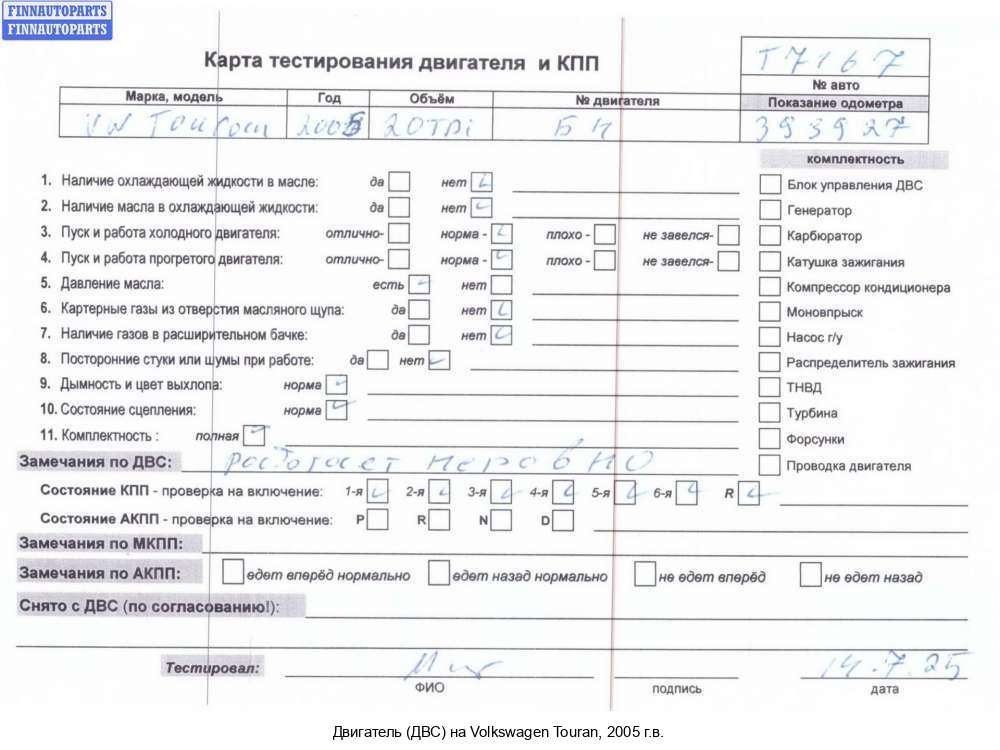 FINNAUTOPARTS
FINNAUTOPARTS
Карта тестирования двигателя и КПП
T7167
№ авто
Марка, модель Год Объём № двигателя Показание одометра
VW Touran 2005 2.0TDi БН 393927
комплектность
1. Наличие охлаждающей жидкости в масле: да нет
Блок управления ДВС
2. Наличие масла в охлаждающей жидкости: да нет
Генератор
3. Пуск и работа холодного двигателя: отлично- норма - плохо - не завелся-
Карбюратор
4. Пуск и работа прогретого двигателя: отлично- норма - плохо - не завелся-
Катушка зажигания
5. Давление масла: есть нет
Компрессор кондиционера
6. Картерные газы из отверстия масляного щупа: да нет
Моновпрыск
7. Наличие газов в расширительном бачке: да нет
Насос г/у
8. Посторонние стуки или шумы при работе: да нет
Распределитель зажигания
9. Дымность и цвет выхлопа: норма
ТНВД
10. Состояние сцепления: норма
Турбина
11. Комплектность : полная
Форсунки
Замечания по ДВС: работает неровно
Проводка двигателя
Состояние КПП - проверка на включение: 1-я 2-я 3-я 4-я 5-я 6-я R
Состояние АКПП - проверка на включение: P R N D
Замечания по МКПП:
Замечания по АКПП: едет вперёд нормально едет назад нормально не едет вперёд не едет назад
Снято с ДВС (по согласованию!):
Тестировал: 14.7.25
ФИО подпись дата
Двигатель (ДВС) на Volkswagen Touran, 2005 г.в.